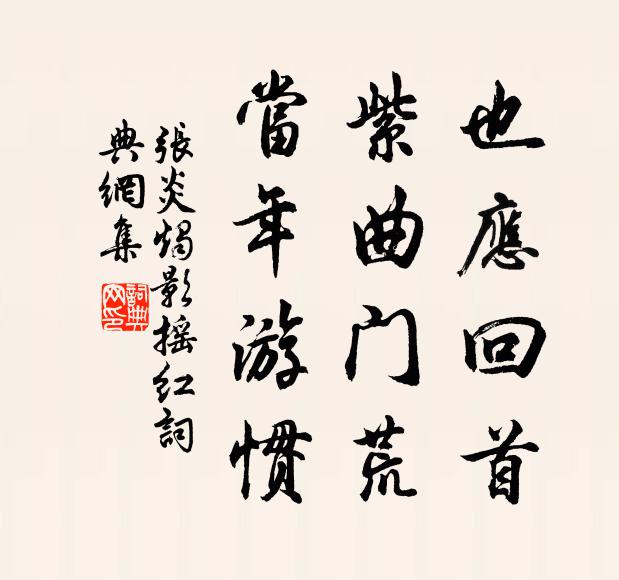 也應回首
紫曲门荒
當年游慣
張炎燭影摇红詞
典網集
詞典
网印